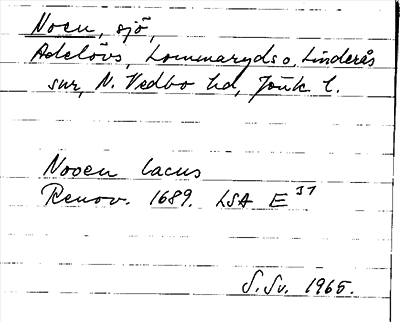 Noen, sjö,
Adelövs, Lommaryds o. Linderås
snr, N. Vedbo hd, Jönk l.
Nooen lacus
Renov. 1689. LSA E
S. Sv. 1965.